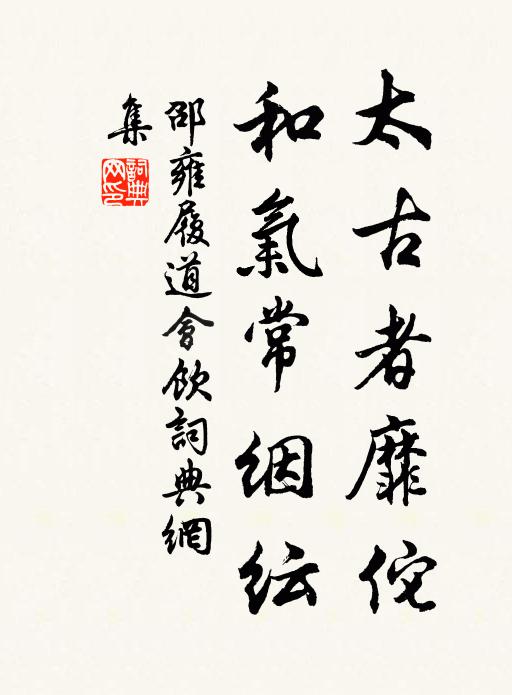 太古者靡佗
和氣常絪紜
邵雍履道會飲詞典網
集
詞典網印